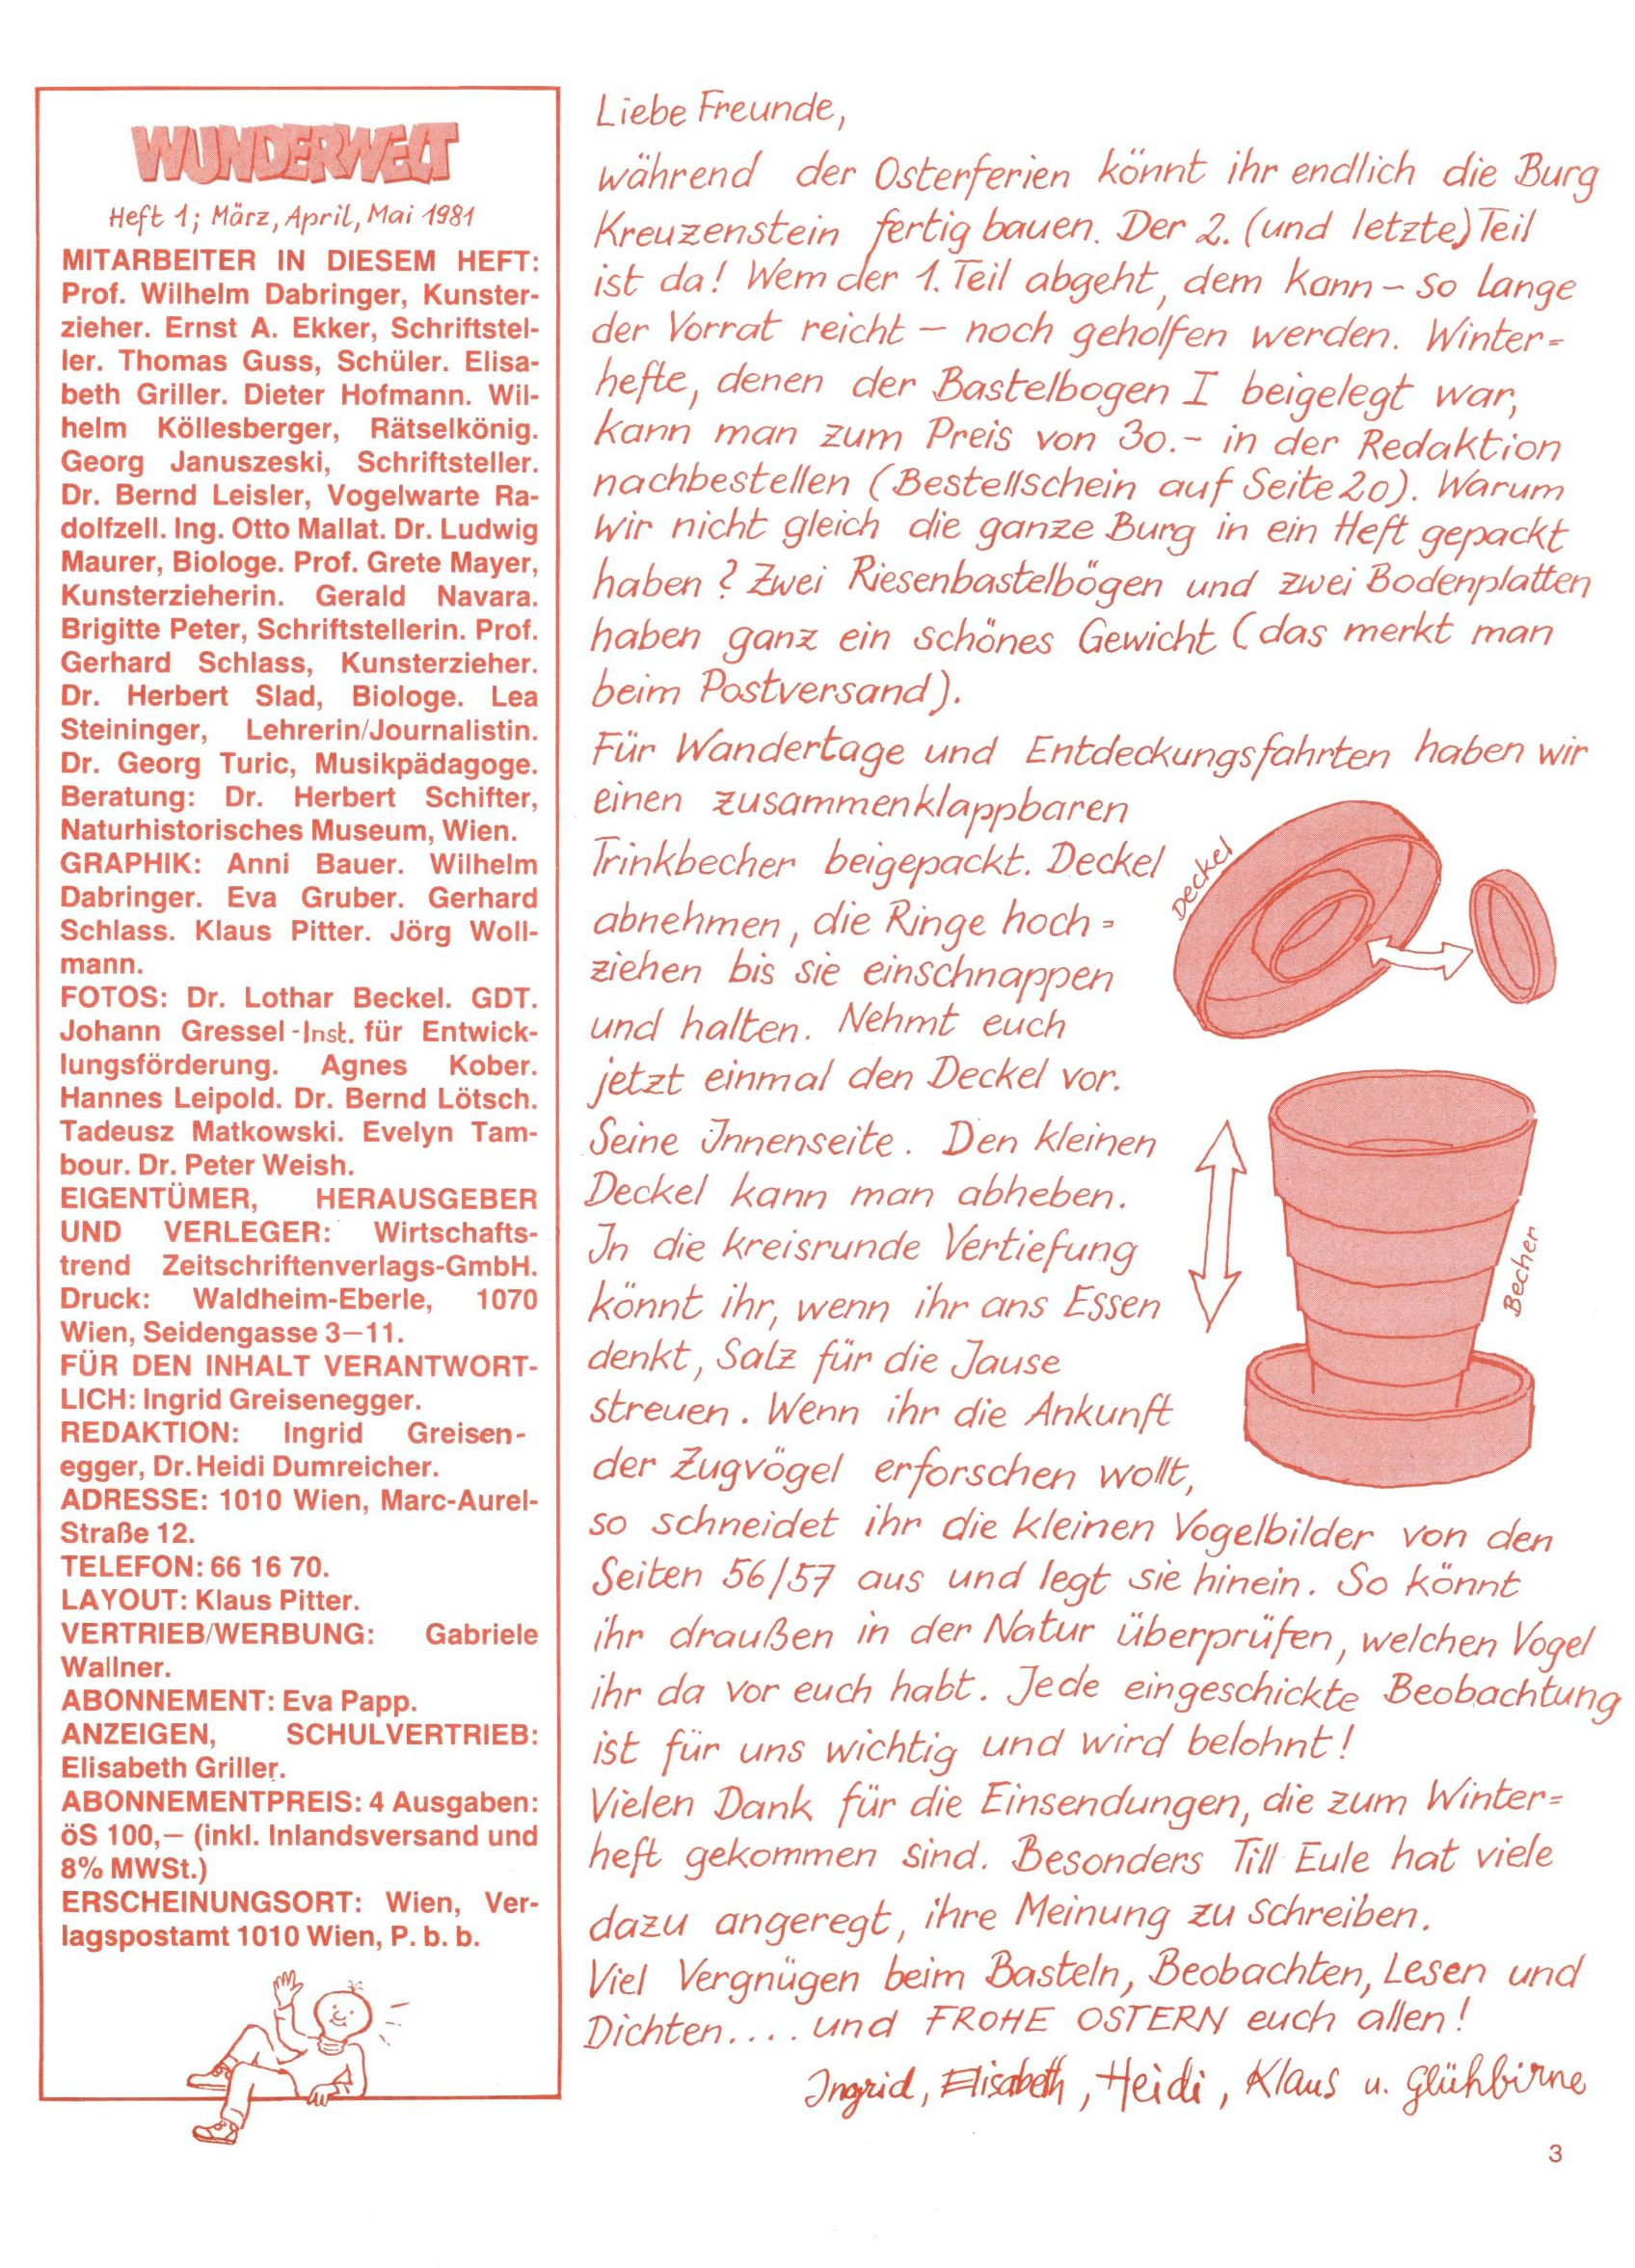 WUNDERWELT
Heft 1; März, April, Mai 1981
MITARBEITER IN DIESEM HEFT:
Prof. Wilhelm Dabringer, Kunster-
zieher. Ernst A. Ekker, Schriftstel-
ler. Thomas Guss, Schüler. Elisa-
beth Griller. Dieter Hofmann. Wil-
helm Köllesberger, Rätselkönig.
Georg Januszeski, Schriftsteller.
Dr. Bernd Leisler, Vogelwarte Ra-
dolfzell. Ing. Otto Mallat. Dr. Ludwig
Maurer, Biologe. Prof. Grete Mayer,
Kunsterzieherin. Gerald Navara.
Brigitte Peter, Schriftstellerin. Prof.
Gerhard Schlass, Kunsterzieher.
Dr. Herbert Slad, Biologe. Lea
Steininger, Lehrerin/Journalistin.
Dr. Georg Turic, Musikpädagoge.
Beratung: Dr. Herbert Schifter,
Naturhistorisches Museum, Wien.
GRAPHIK: Anni Bauer. Wilhelm
Dabringer. Eva Gruber. Gerhard
Schlass. Klaus Pitter. Jörg Woll-
mann.
FOTOS: Dr. Lothar Beckel. GDT.
Johann Gressel-Inst. für Entwick-
lungsförderung. Agnes Kober.
Hannes Leipold. Dr. Bernd Lötsch.
Tadeusz Matkowski. Evelyn Tam-
bour. Dr. Peter Weish.
EIGENTÜMER, HERAUSGEBER
UND VERLEGER: Wirtschafts-
trend Zeitschriftenverlags-GmbH.
Druck: Waldheim-Eberle, 1070
Wien, Seidengasse 3–11.
FÜR DEN INHALT VERANTWORT-
LICH: Ingrid Greisenegger.
REDAKTION: Ingrid Greisen-
egger, Dr. Heidi Dumreicher.
ADRESSE: 1010 Wien, Marc-Aurel-
Straße 12.
TELEFON: 66 16 70.
LAYOUT: Klaus Pitter.
VERTRIEB/WERBUNG: Gabriele
Wallner.
ABONNEMENT: Eva Papp.
ANZEIGEN, SCHULVERTRIEB:
Elisabeth Griller.
ABONNEMENTPREIS: 4 Ausgaben:
öS 100,– (inkl. Inlandsversand und
8% MWSt.)
ERSCHEINUNGSORT: Wien, Ver-
lagspostamt 1010 Wien, P. b. b.
Liebe Freunde,
während der Osterferien könnt ihr endlich die Burg
Kreuzenstein fertig bauen. Der 2. (und letzte) Teil
ist da! Wem der 1. Teil abgeht, dem kann – so lange
der Vorrat reicht – noch geholfen werden. Winter=
hefte, denen der Bastelbogen I beigelegt war,
kann man zum Preis von 30.- in der Redaktion
nachbestellen (Bestellschein auf Seite 20). Warum
wir nicht gleich die ganze Burg in ein Heft gepackt
haben? Zwei Riesenbastelbögen und zwei Bodenplatten
haben ganz ein schönes Gewicht (das merkt man
beim Postversand).
Für Wandertage und Entdeckungsfahrten haben wir
einen zusammenklappbaren
Trinkbecher beigepackt. Deckel
abnehmen, die Ringe hoch=
ziehen bis sie einschnappen
und halten. Nehmt euch
jetzt einmal den Deckel vor.
Seine Innenseite. Den kleinen
Deckel kann man abheben.
In die kreisrunde Vertiefung
könnt ihr, wenn ihr ans Essen
denkt, Salz für die Jause
streuen. Wenn ihr die Ankunft
der Zugvögel erforschen wollt,
so schneidet ihr die kleinen Vogelbilder von den
Seiten 56/57 aus und legt sie hinein. So könnt
ihr draußen in der Natur überprüfen, welchen Vogel
ihr da vor euch habt. Jede eingeschickte Beobachtung
ist für uns wichtig und wird belohnt!
Vielen Dank für die Einsendungen, die zum Winter=
heft gekommen sind. Besonders Till Eule hat viele
dazu angeregt, ihre Meinung zu schreiben.
Viel Vergnügen beim Basteln, Beobachten, Lesen und
Dichten.... und FROHE OSTERN euch allen!
Ingrid, Elisabeth, Heidi, Klaus u. Glühbirne
Deckel
Becher
3